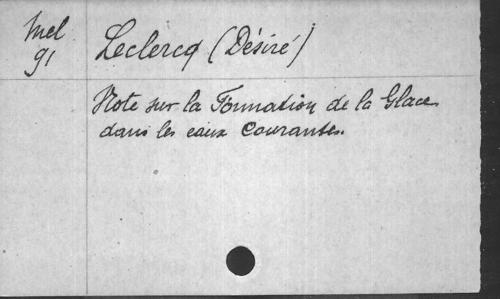 Mel
91
Leclercq (Désiré)
Note sur la Formation de la Glace
dans les eaux Courantes.